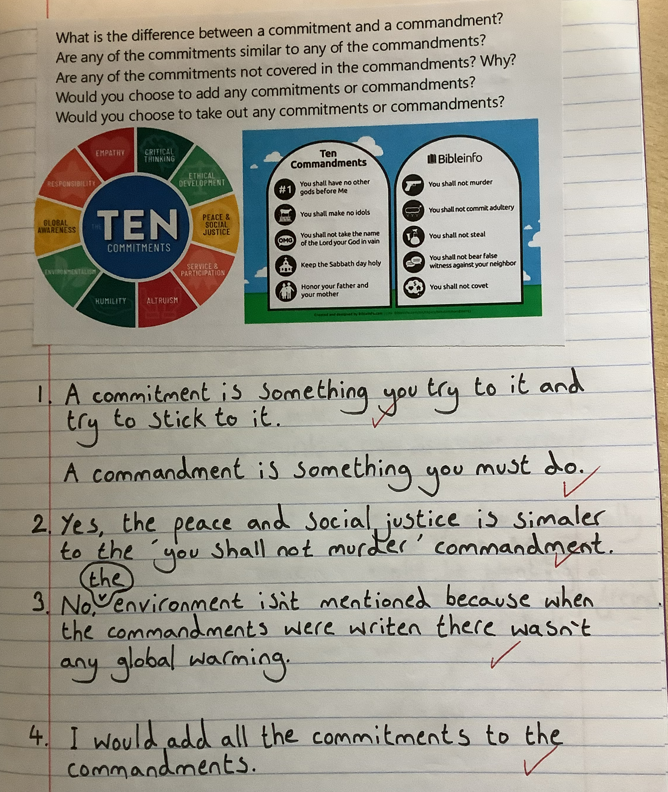 What is the difference between a commitment and a commandment?
Are any of the commitments similar to any of the commandments?
Are any of the commitments not covered in the commandments? Why?
Would you choose to add any commitments or commandments?
Would you choose to take out any commitments or commandments?
EMPATHY
CRITICAL
THINKING
ETHICAL
DEVELOPMENT
PEACE &
SOCIAL
JUSTICE
SERVICE &
PARTICIPATION
ALTRUISM
HUMILITY
ENVIRONMENTALISM
GLOBAL
AWARENESS
RESPONSIBILITY
THE TEN
COMMITMENTS
Ten
Commandments
#1 You shall have no other
gods before Me
You shall make no idols
OMG You shall not take the name
of the Lord your God in vain
Keep the Sabbath day holy
Honor your father and
your mother
Bibleinfo
You shall not murder
You shall not commit adultery
You shall not steal
You shall not bear false
witness against your neighbor
You shall not covet
1. A commitment is something you try to it and
try to stick to it.
A commandment is something you must do.
2. Yes, the peace and social justice is simaler
to the 'you shall not murder' commandment.
the
3. No, environment isn't mentioned because when
the commandments were writen there wasn't
any global warming.
4. I would add all the commitments to the
commandments.